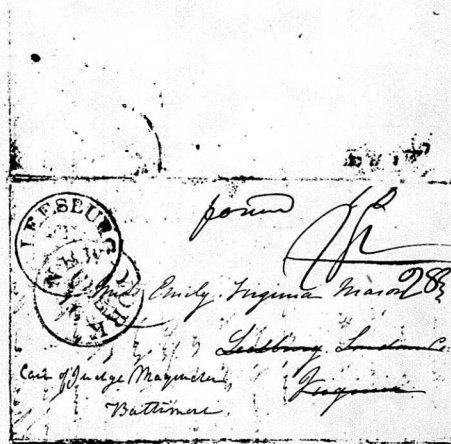 LEESBURG
NEW YORK
Miss Emily Virginia Mason
Leesburg Loudon Co.
Virginia
Care of Judge
Baltimore